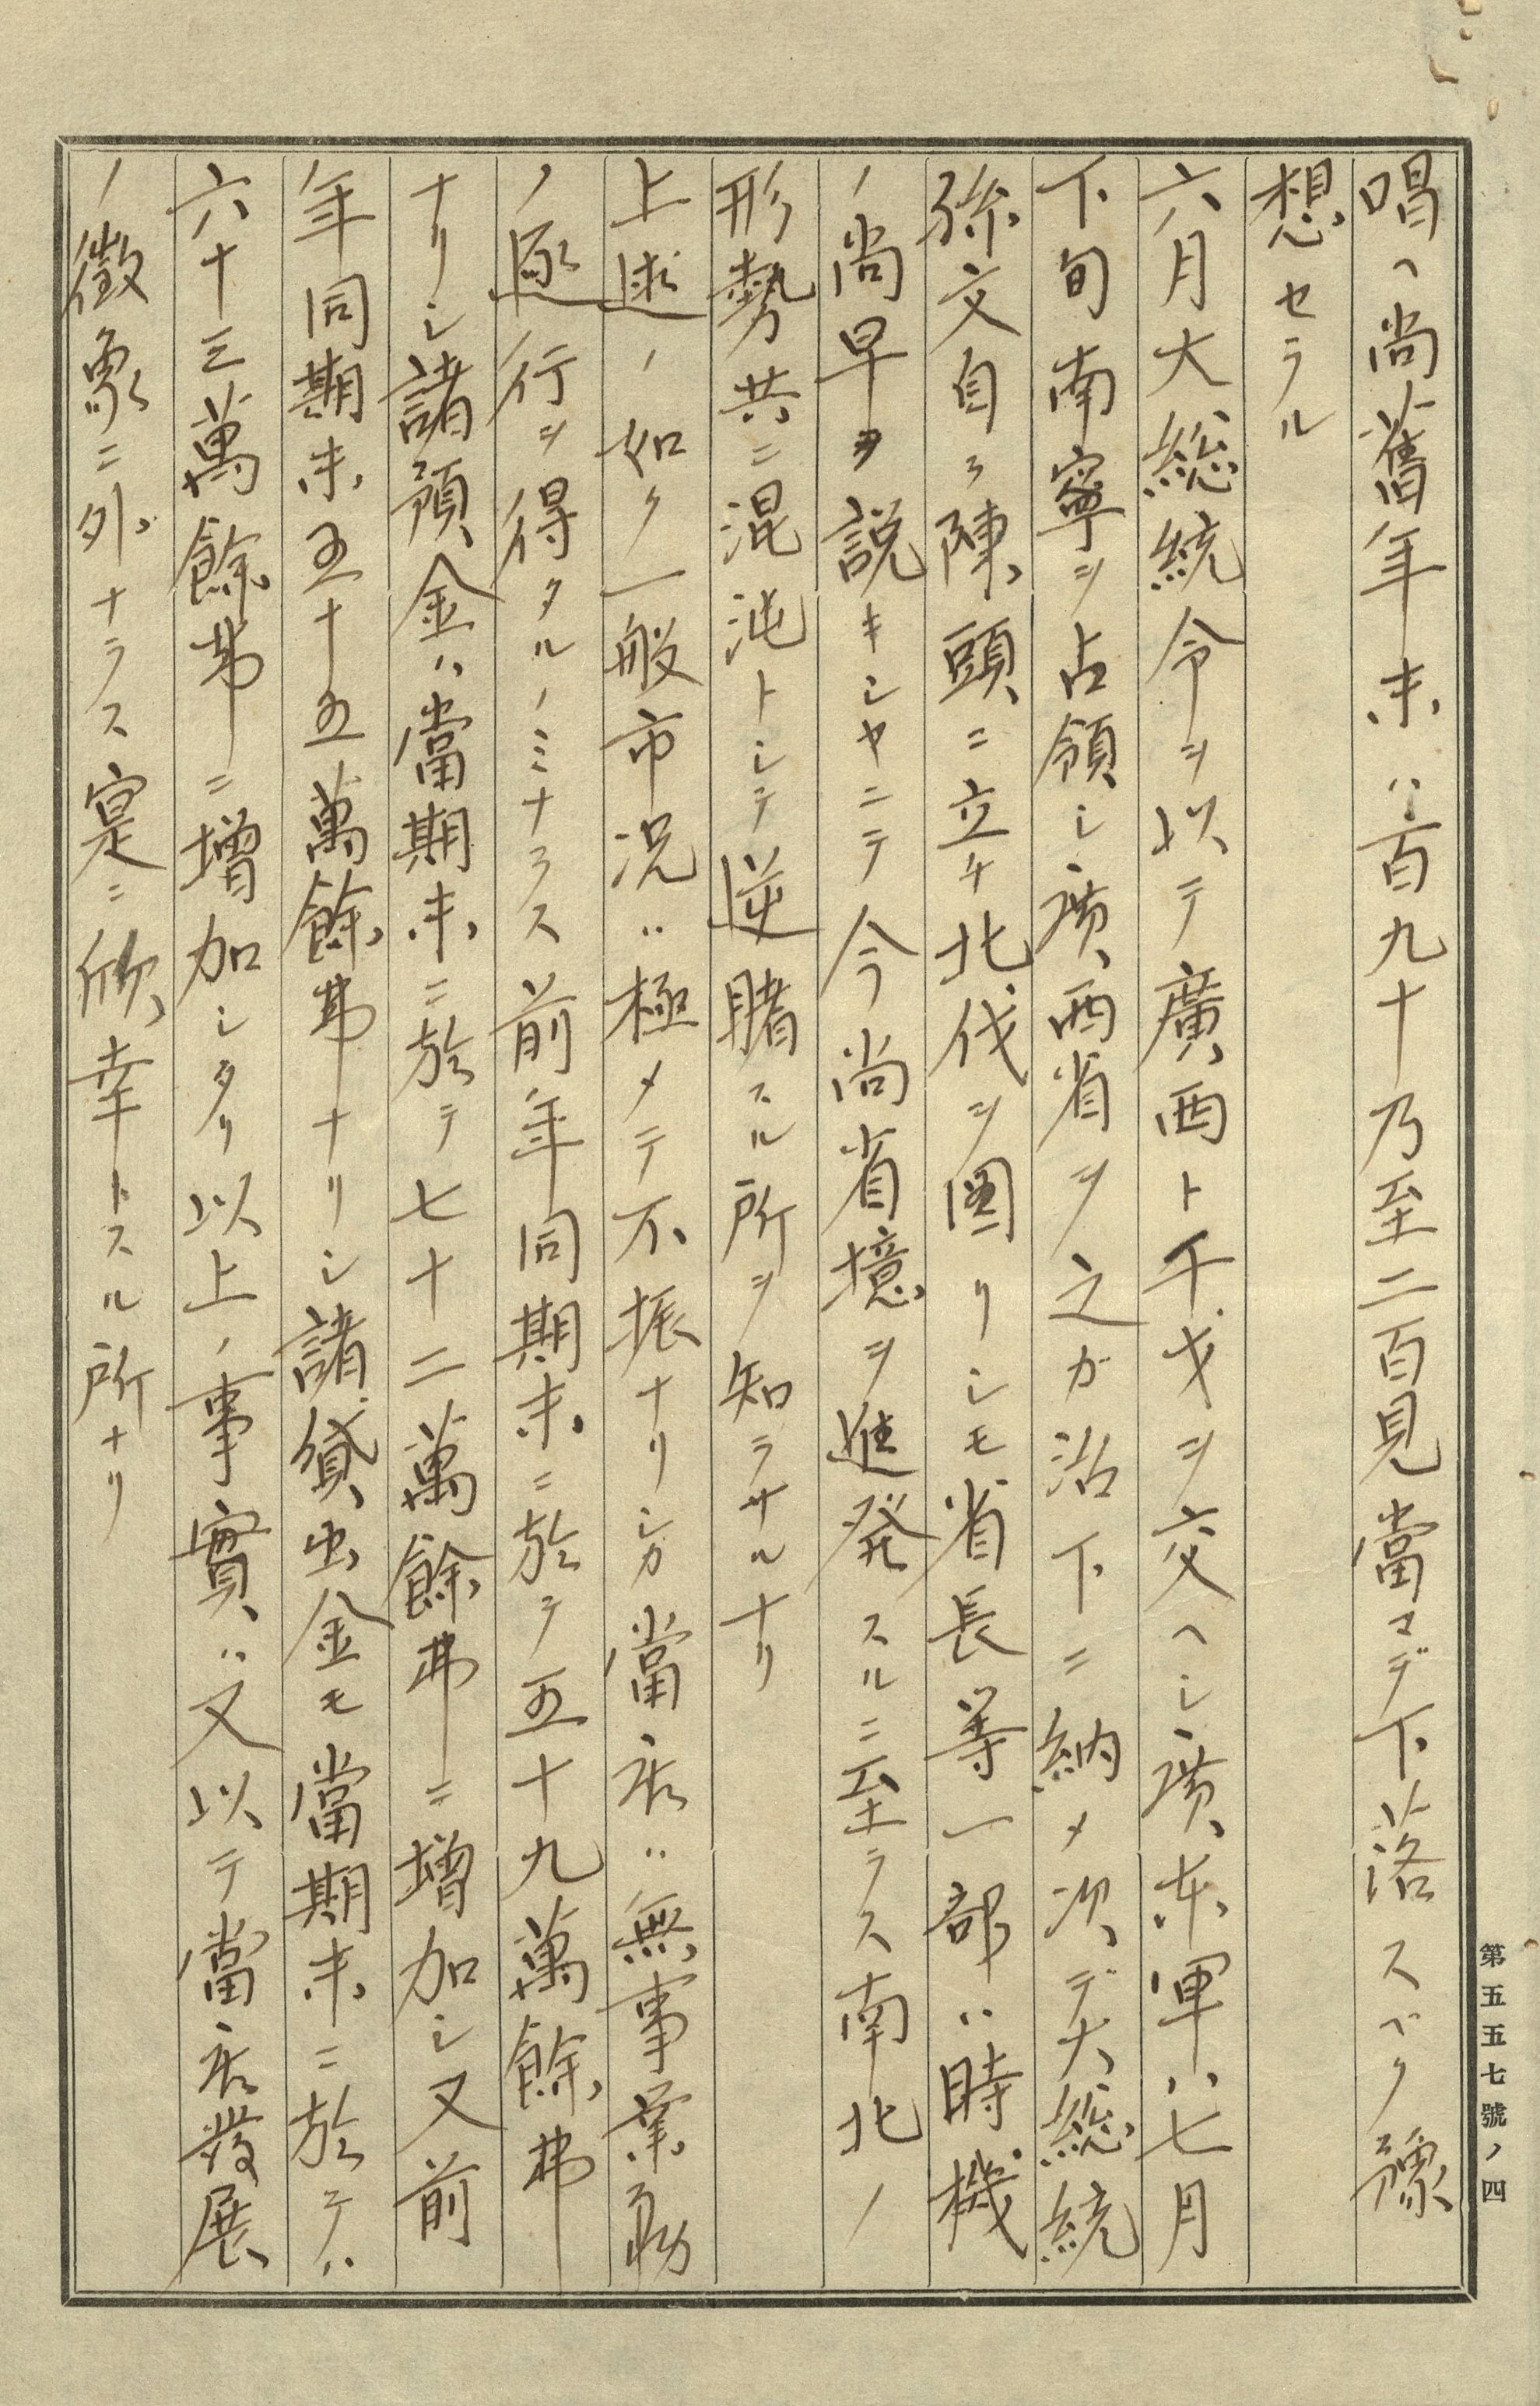 唱ヘ尚舊年末ハ百九十乃至二百見當マデ下落スベク豫
想セラル
六月大総統令ヲ以テ廣西ト干戈ヲ交ヘシ廣東軍ハ七月
下旬南寧ヲ占領シ廣西省ヲ之ガ治下ニ納メ次デ大総統
孫文自ラ陳頭ニ立チ北伐ヲ圖リシモ省長等一部ハ時機
ノ尚早ヲ説キシヤニテ今尚省境ヲ進発スルニ至ラス南北ノ
形勢共ニ混沌トシテ逆睹スル所ヲ知ラサルナリ
上述ノ如ク一般市况ハ極メテ不振ナリシガ當店ハ無事業務
ノ遂行ヲ得タルノミナラス前年同期末ニ於テ五十九萬餘弗
ナリシ諸預金ハ當期末ニ於テ七十二萬餘弗ニ増加シ又前
年同期末五十五萬餘弗ナリシ諸貸出金モ當期末ニ於テハ
六十三萬餘弗ニ増加シタリ以上ノ事實ハ又以テ當店發展
ノ徴象ニ外ナラス寔ニ欣幸トスル所ナリ
第五五七號ノ四